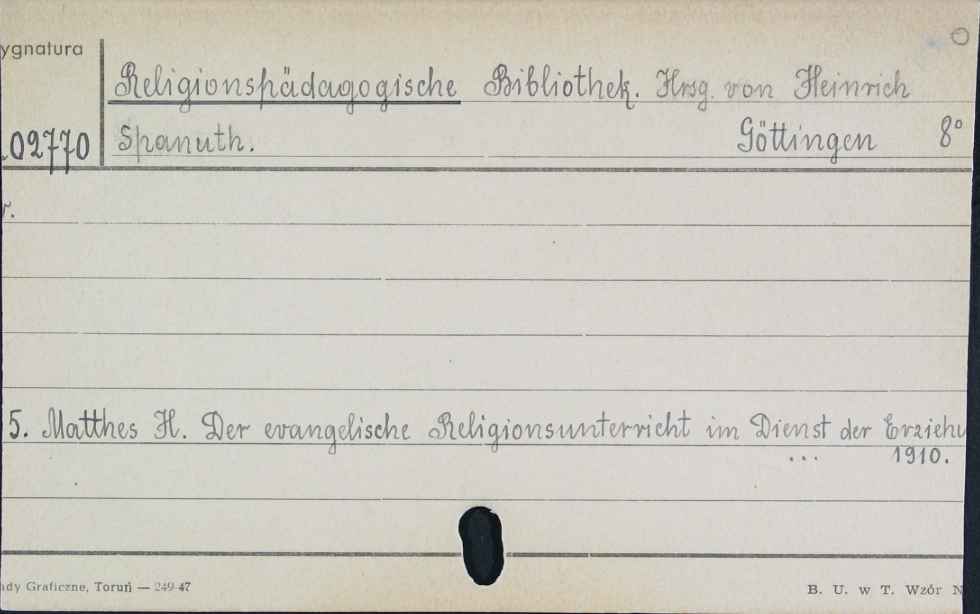 ygnatura
Religionspädagogische Bibliothek. Hrsg. von Heinrich
02770 Spanuth. Göttingen 8°
r.
5. Matthes H. Der evangelische Religionsunterricht im Dienst der Erziehu
... 1910.
ady Graficzne, Toruń — 249-47 B. U. w T. Wzór N